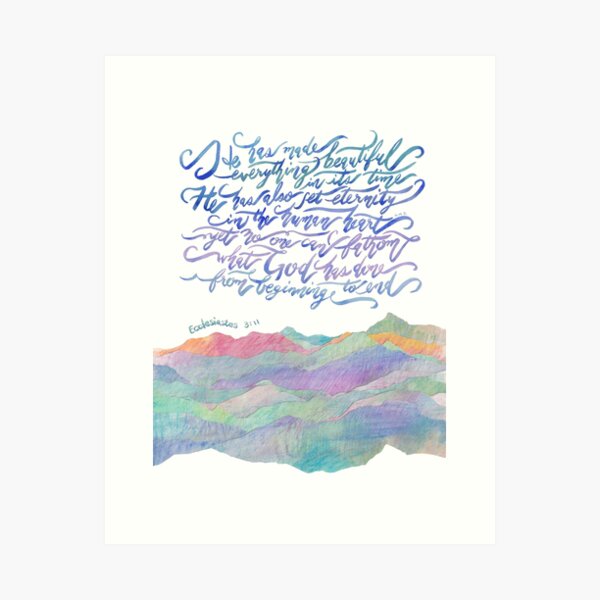 He has made
everything beautiful
in its time
He has also set eternity
in the human heart
yet no one can fathom
what God has done
from beginning to end
Ecclesiastes 3:11